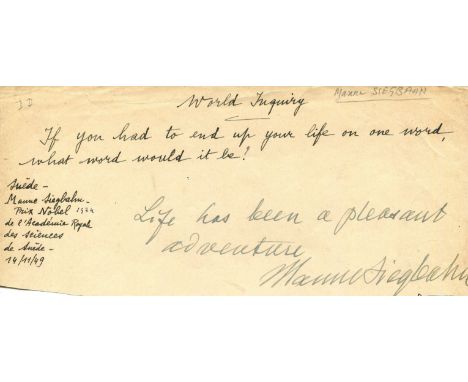 I D
Manne SIEGBAHN
World Inquiry
If you had to end up your life on one word,
what word would it be?
Suède -
Manne Siegbahn -
Prix Nobel 1924
de l'Académie Royal
des sciences
de Suède -
14/11/49
Life has been a pleasant
adventure
Manne Siegbahn